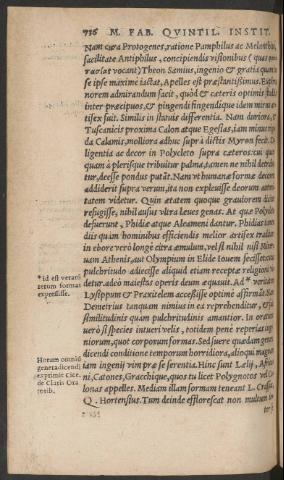 736 M. FAB. QVINTIL. INSTIT.
Nam cura Protogenes, ratione Pamphilus ac Melanthius,
facilitate Antiphilus, concipiendis visionibus (quas
vocant) Theon Samius, ingenio & gratia quam in
se ipse maxime iactat, Apelles est præstantissimus. Euphra
norem admirandum facit, quòd & cæteris optimis studiis
inter præcipuos, & pingendi fingendique idem mirus ar
tifex fuit. Similis in statuis differentia. Nam duriora, &
Tuscanicis proxima Calon atque Egesias, iam minus rigi
da Calamis, molliora adhuc supra dictis Myron fecit. Di
ligentia ac decor in Polycleto supra cæteros: cui quan
quam à plerisque tribuitur palma, tamen ne nihil detraha
tur, deesse pondus putãt. Nam vt humanæ formæ decorem
addiderit supra verum, ita non expleuisse deorum autho
tatem videtur. Quin ætatem quoque grauiorem dicitur
refugisse, nihil ausus vltra leues genas. At quæ Polycleto
defuerunt, Phidiæ atque Alcameni dantur. Phidias tamen
diis quàm hominibus efficiendis melior artifex traditur:
in ebore verò longè citra æmulum, vel si nihil nisi Miner
uam Athenis, aut Olympium in Elide Iouem fecisset: cuius
pulchritudo adiecisse aliquid etiam receptæ religioni vi
detur: adeò maiestas operis deum æquauit. Ad* veritatem
Lysippum & Praxitelem accessisse optimè affirmãt. Nam
Demetrius tanquam nimius in ea reprehenditur, & fuit
similitudinis quàm pulchritudinis amantior. In oratione
verò si species intueri velis, totidem penè reperias inge
niorum, quot corporum formas. Sed fuere quædam genera
dicendi conditione temporum horridiora, alioqui magnam
iam ingenij vim præ se ferentia. Hinc sunt Lælij, Africa
ni, Catones, Gracchique, quos tu licet Polygnotos vel Ca
lonas appelles. Mediam illam formam teneant L. Crassus,
Q. Hortensius. Tum deinde efflorescat non multum in
ter
*id est veram
rerum formas
expressisse.
Horum omniũ
genera dicendi
exprimit Cice.
de Claris Ora
torib.